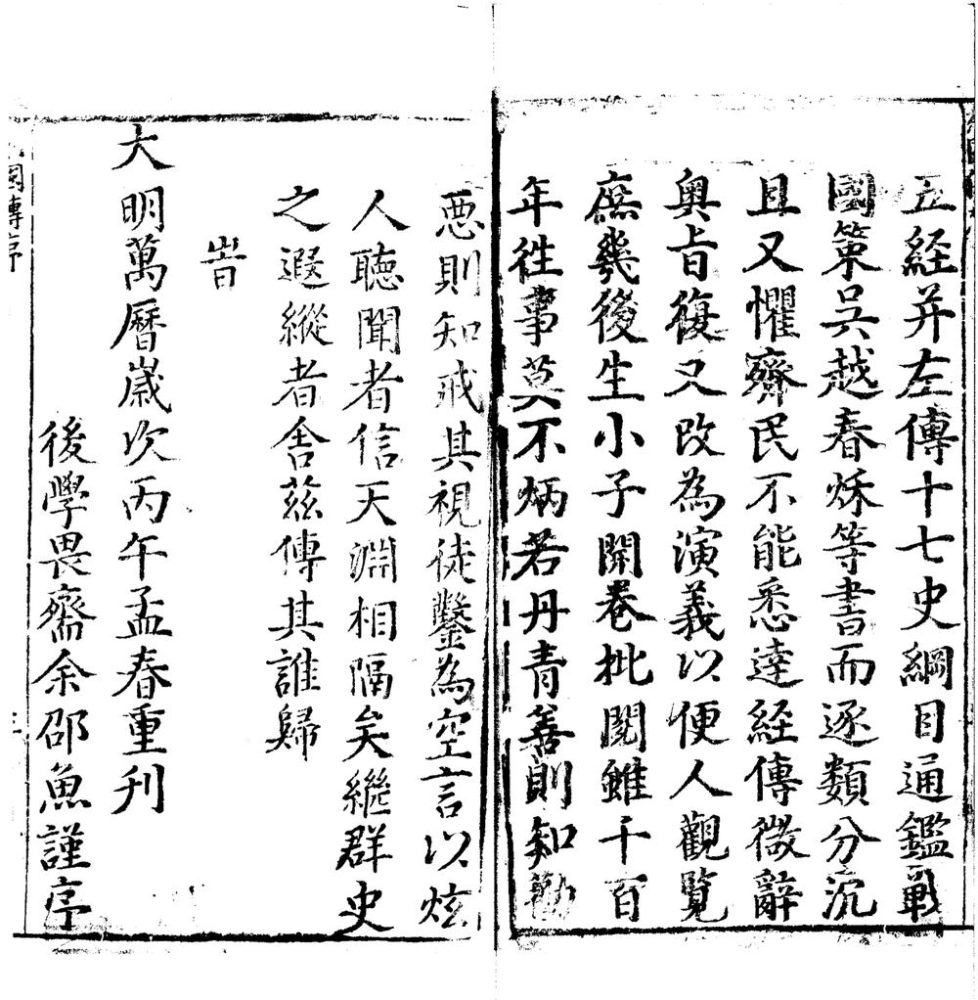 五經并左傳十七史綱目通鑑戰
國策吳越春秋等書而逐類分沉
且又懼齊民不能悉達經傳微辭
奧旨復又改為演義以便人觀覽
庶幾後生小子開卷批閱雖千百
年徃事莫不炳若丹青善則知勸
惡則知戒其視徒鑿為空言以炫
人聽聞者信天淵相隔矣繼群史
之遐縱者舍茲傳其誰歸
旹
大明萬曆嵗次丙午孟春重刊
後學畏齋余邵魚謹序
國傳序